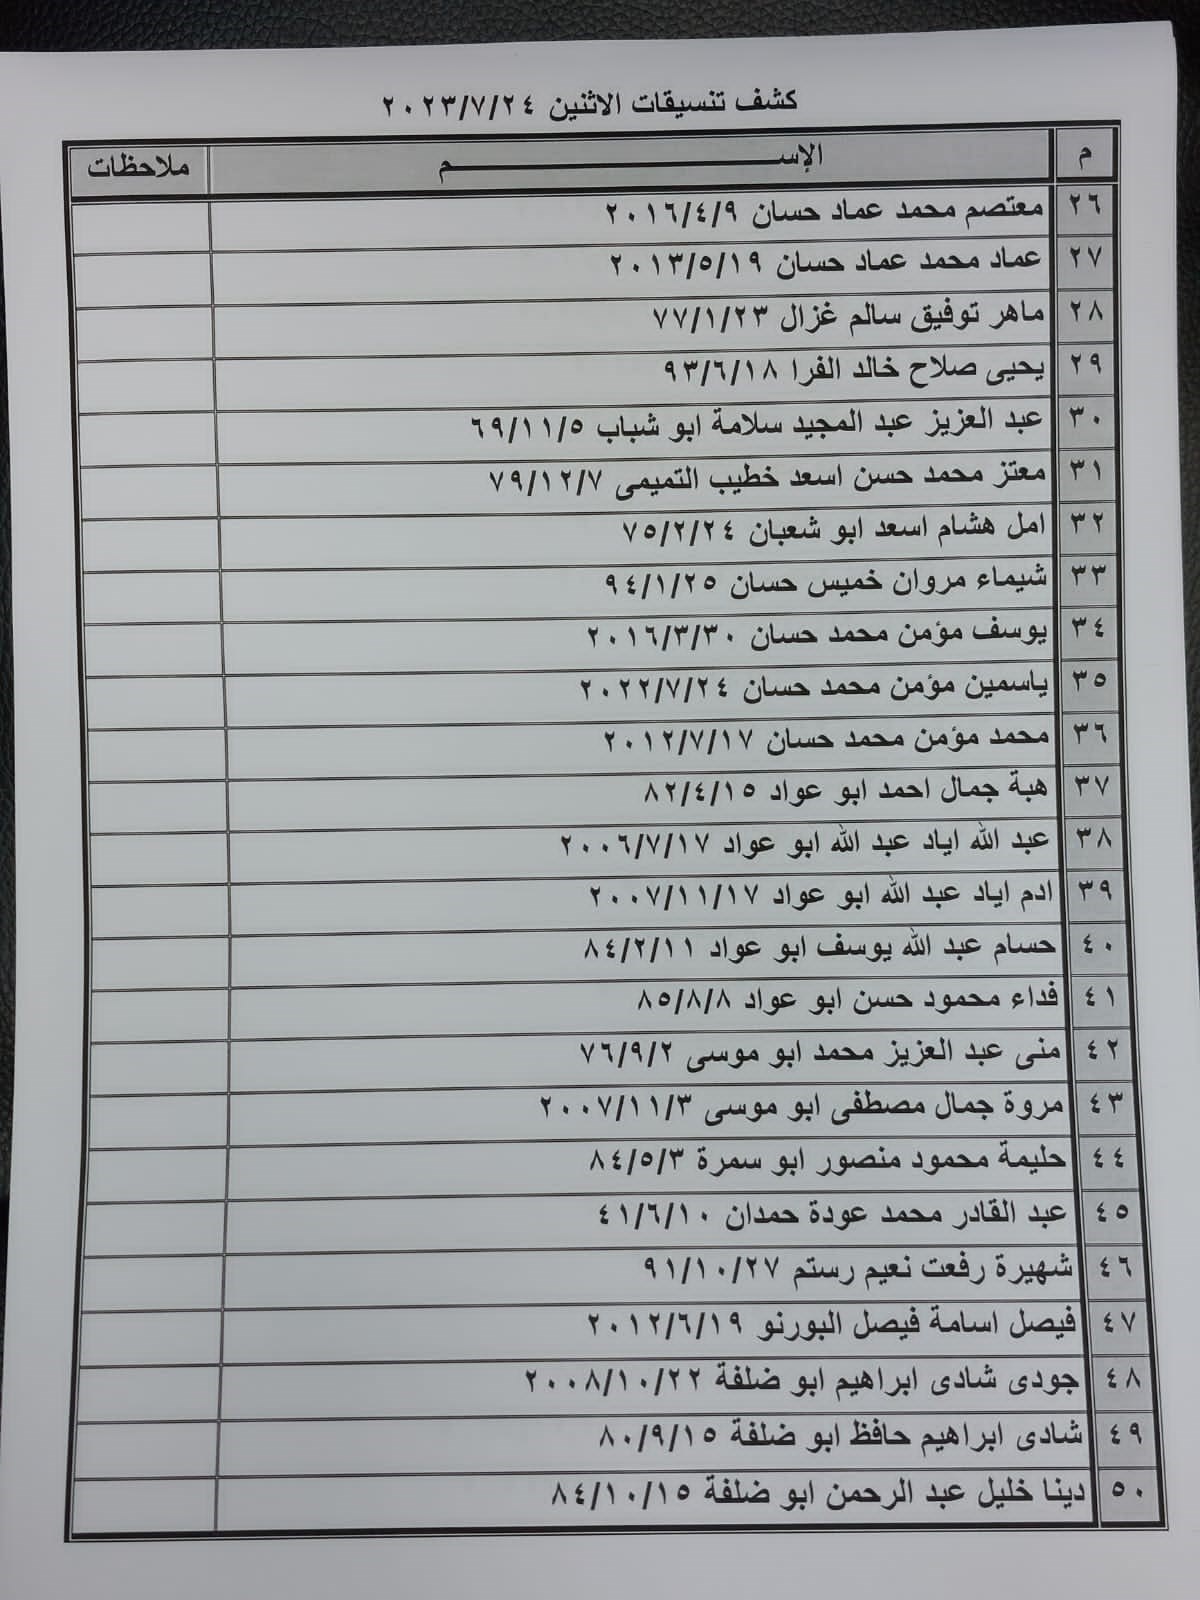 كشف تنسيقات الاثنين ٢٠٢٣/٧/٢٤
م الإســـــــم ملاحظات
٢٦ معتصم محمد عماد حسان ٢٠١٦/٤/٩
٢٧ عماد محمد عماد حسان ٢٠١٣/٥/١٩
٢٨ ماهر توفيق سالم غزال ٧٧/١/٢٣
٢٩ يحيى صلاح خالد الفرا ٩٣/٦/١٨
٣٠ عبد العزيز عبد المجيد سلامة ابو شباب ٦٩/١١/٥
٣١ معتز محمد حسن اسعد خطيب التميمى ٧٩/١٢/٧
٣٢ امل هشام اسعد ابو شعبان ٧٥/٢/٢٤
٣٣ شيماء مروان خميس حسان ٩٤/١/٢٥
٣٤ يوسف مؤمن محمد حسان ٢٠١٦/٣/٣٠
٣٥ ياسمين مؤمن محمد حسان ٢٠٢٢/٧/٢٤
٣٦ محمد مؤمن محمد حسان ٢٠١٢/٧/١٧
٣٧ هبة جمال احمد ابو عواد ٨٢/٤/١٥
٣٨ عبد الله اياد عبد الله ابو عواد ٢٠٠٦/٧/١٧
٣٩ ادم اياد عبد الله ابو عواد ٢٠٠٧/١١/١٧
٤٠ حسام عبد الله يوسف ابو عواد ٨٤/٢/١١
٤١ فداء محمود حسن ابو عواد ٨٥/٨/٨
٤٢ منى عبد العزيز محمد ابو موسى ٧٦/٩/٢
٤٣ مروة جمال مصطفى ابو موسى ٢٠٠٧/١١/٣
٤٤ حليمة محمود منصور ابو سمرة ٨٤/٥/٣
٤٥ عبد القادر محمد عودة حمدان ٤١/٦/١٠
٤٦ شهيرة رفعت نعيم رستم ٩١/١٠/٢٧
٤٧ فيصل اسامة فيصل البورنو ٢٠١٢/٦/١٩
٤٨ جودى شادى ابراهيم ابو ضلفة ٢٠٠٨/١٠/٢٢
٤٩ شادى ابراهيم حافظ ابو ضلفة ٨٠/٩/١٥
٥٠ دينا خليل عبد الرحمن ابو ضلفة ٨٤/١٠/١٥